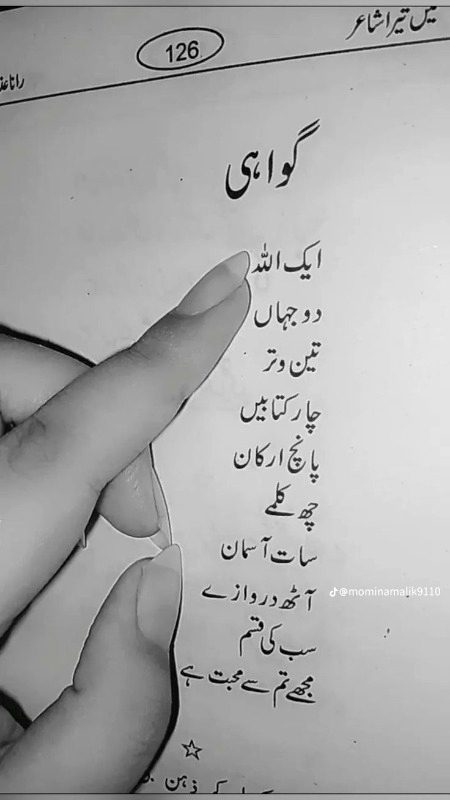 میں تیرا شاعر
126
گواہی
ایک اللہ
دو جہاں
تین وتر
چار کتابیں
پانچ ارکان
چھ کلمے
سات آسمان
آٹھ دروازے
@mominamalik9110
سب کی قسم
مجھے تم سے محبت ہے
ذہن